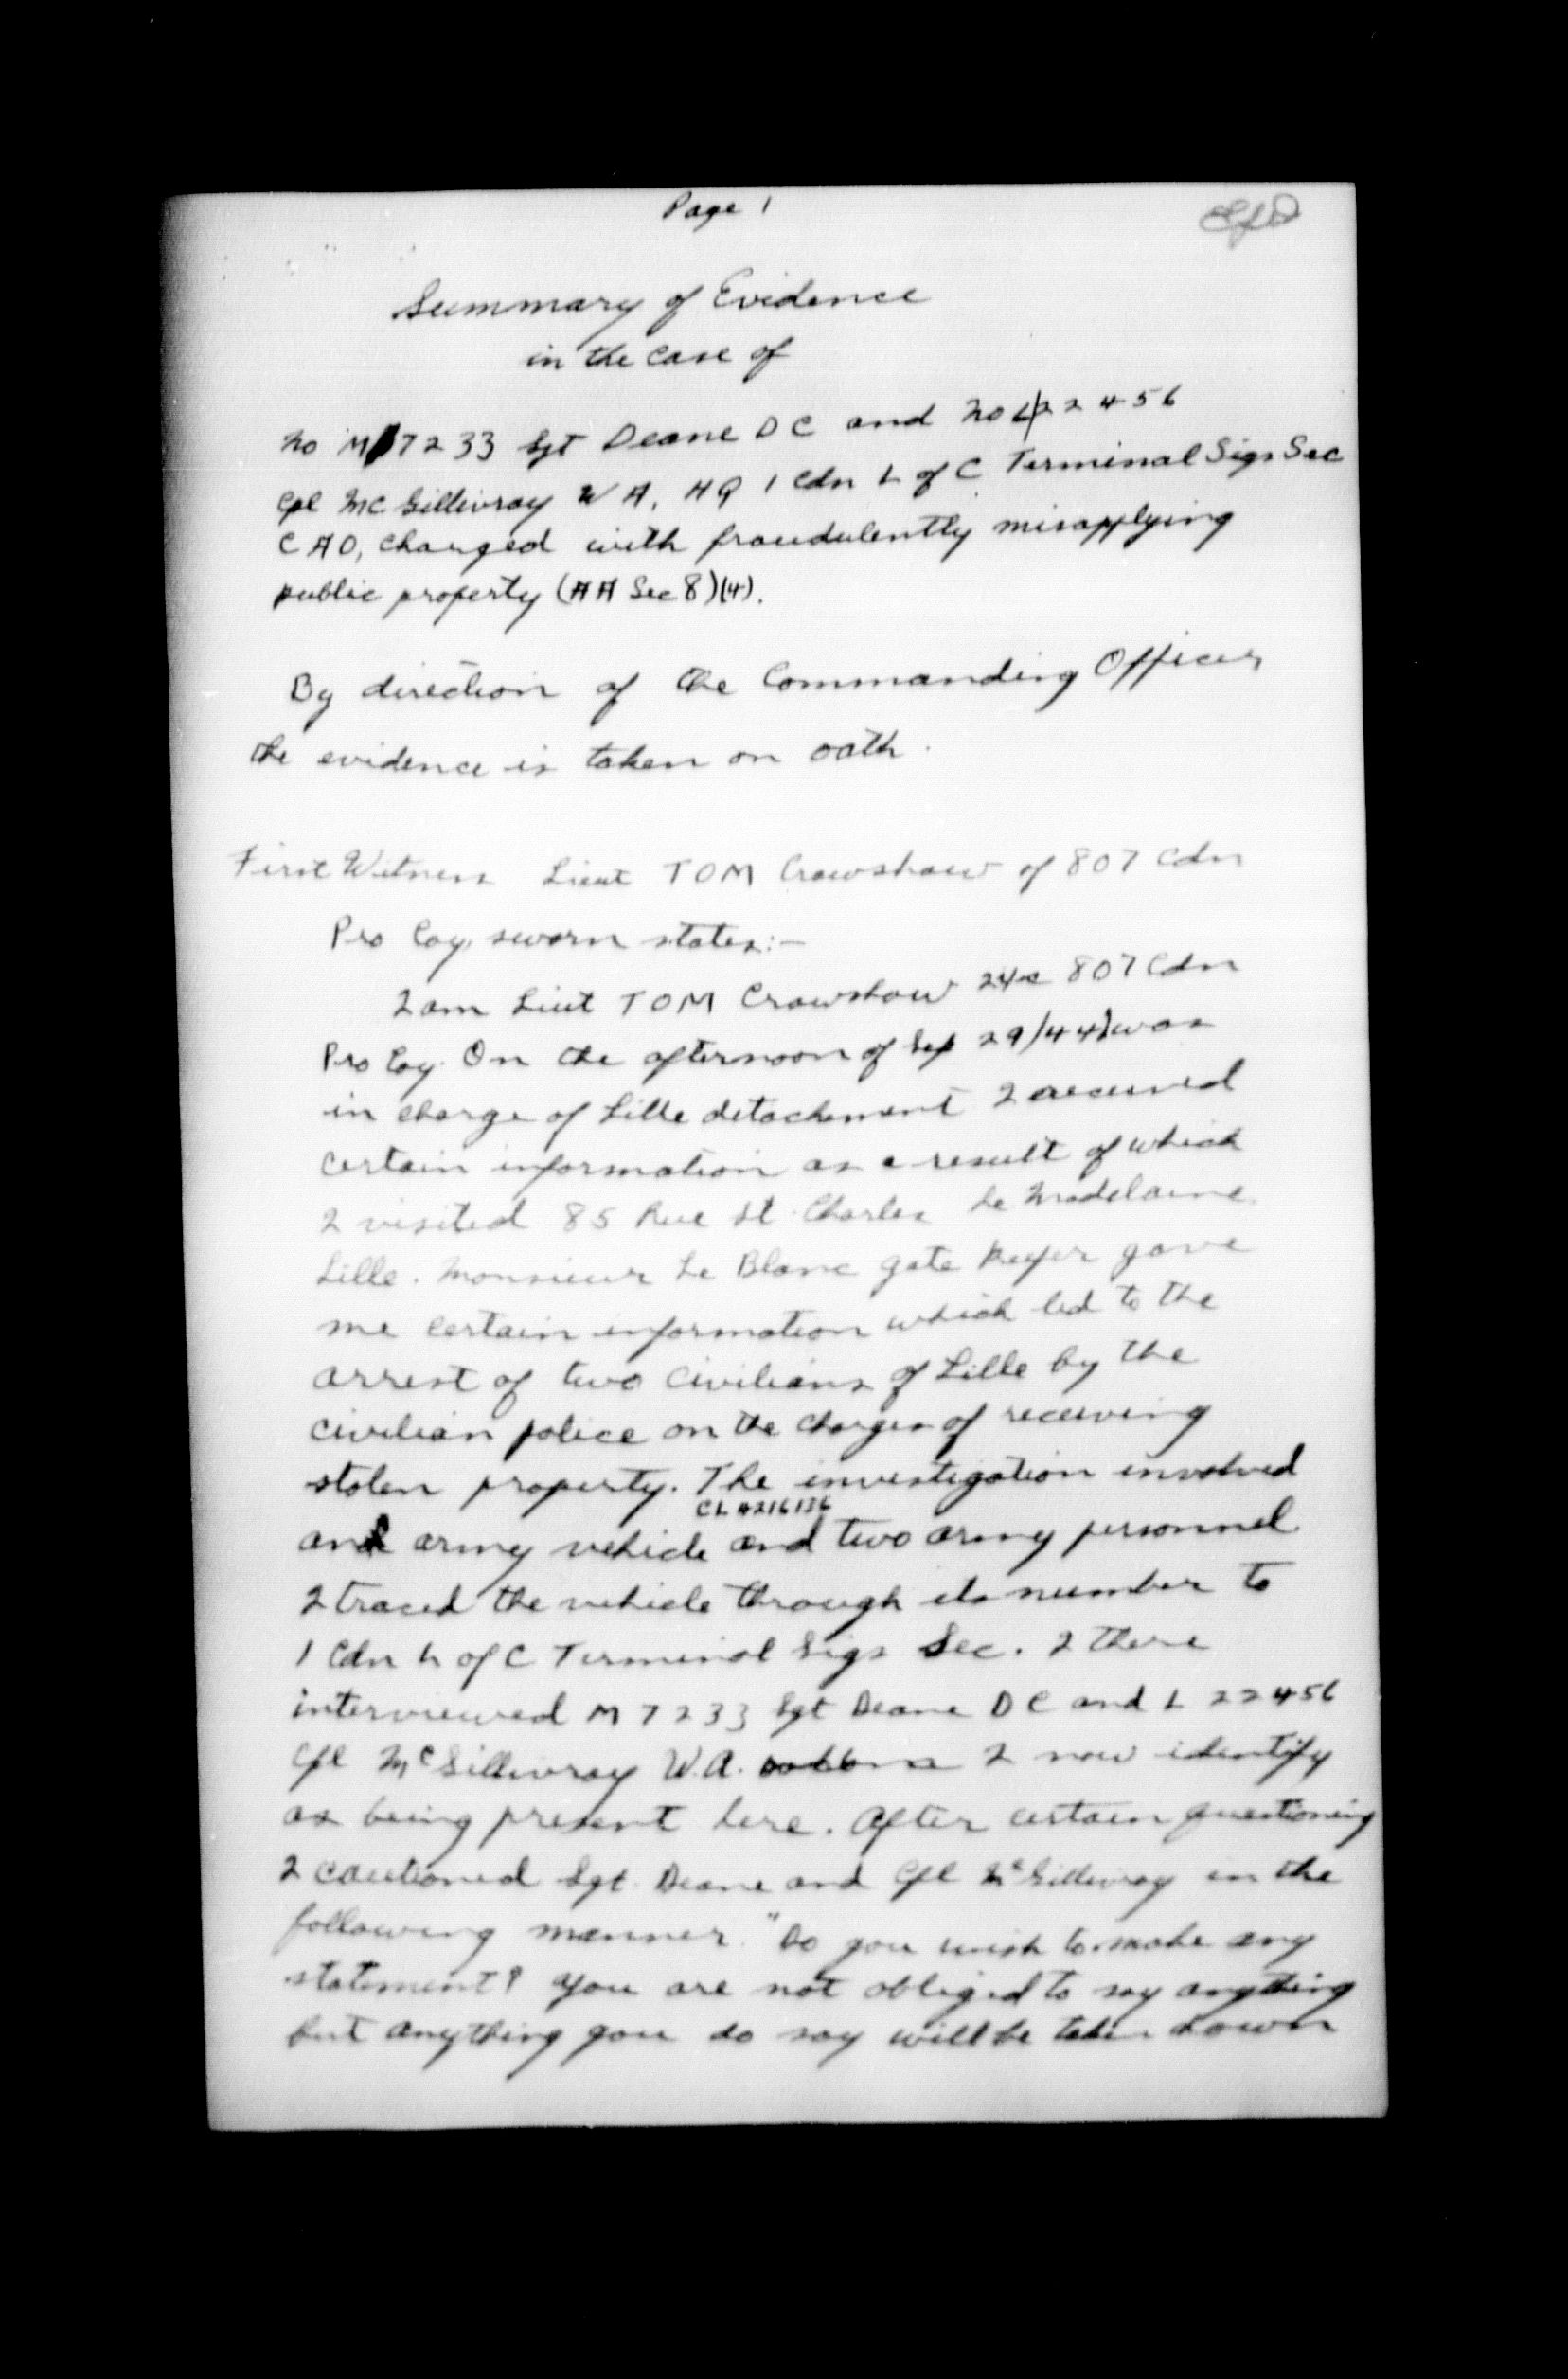 Page 1
Summary of Evidence
in the case of
No M 7233 Sgt Deane D C and No L 22456
Cpl McGillivray W A, HQ 1 Cdn L of C Terminal Sigs Sec
C A O, charged with fraudulently misapplying
public property (A A Sec 8)(4).
By direction of the Commanding Officer
the evidence is taken on oath.
First Witness Lieut TOM Crawshaw of 807 Cdn
Pro Coy, sworn states:—
I am Lieut TOM Crawshaw 807 Cdn
Pro Coy. On the afternoon of Sep 29/44 I was
in charge of Lille detachment I received
certain information as a result of which
I visited 85 Rue St. Charles La Madelaine
Lille. Monsieur Le Blanc gate keeper gave
me certain information which led to the
arrest of two civilians of Lille by the
civilian police on the charges of receiving
stolen property. The investigation involved
CL 4216136
an army vehicle and two army personnel
I traced the vehicle through its number to
1 Cdn L of C Terminal Sigs Sec. I there
interviewed M 7233 Sgt Deane D C and L 22456
Cpl McGillivray W.A. I now identify
as being present here. After certain questioning
I cautioned Sgt Deane and Cpl McGillivray in the
following manner. "Do you wish to make any
statement? You are not obliged to say anything
but anything you do say will be taken down